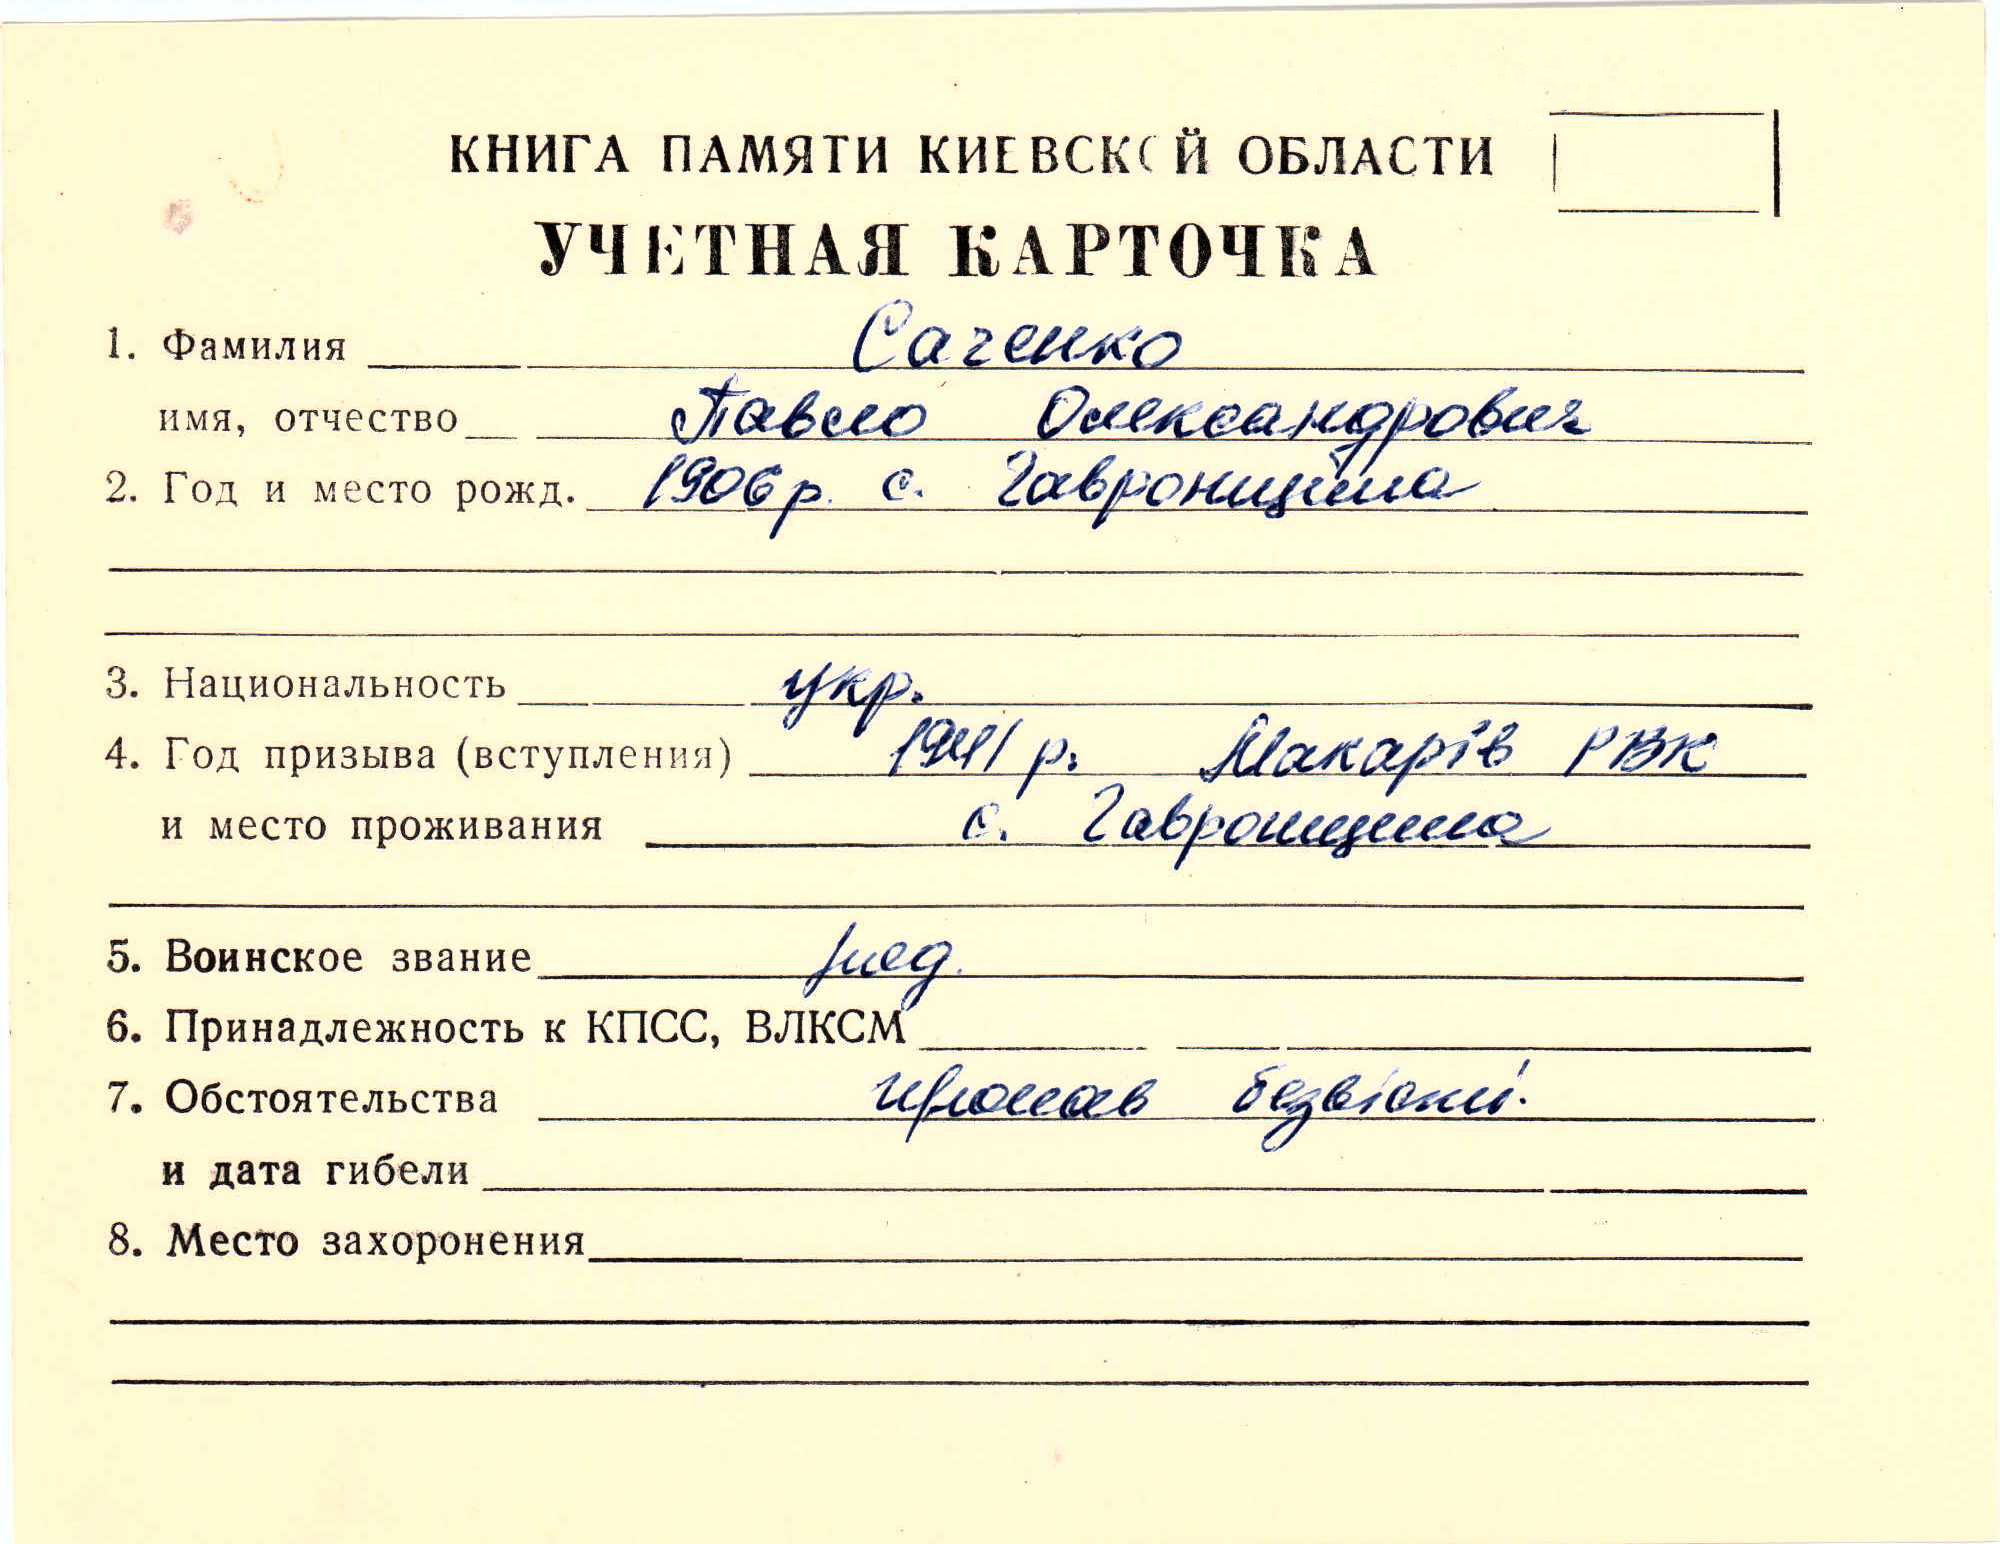 КНИГА ПАМЯТИ КИЕВСКОЙ ОБЛАСТИ
УЧЕТНАЯ КАРТОЧКА
1. Фамилия Саченко
имя, отчество Павло Олександрович
2. Год и место рожд. 1906 р. с. Гавронщина
3. Национальность укр.
4. Год призыва (вступления) 1941 р. Макарів РВК
и место проживания с. Гавронщина
5. Воинское звание ряд.
6. Принадлежность к КПСС, ВЛКСМ
7. Обстоятельства пропав безвісті.
и дата гибели
8. Место захоронения